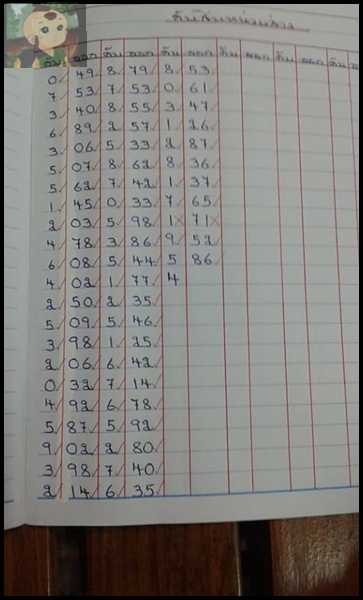 ต้น ออก ต้น ออก ต้น ออก ต้น ออก ต้น ออก ต้น
0/ 49/ 8/ 79/ 8/ 53/
7/ 53/ 7/ 53/ 0/ 61/
3/ 40/ 8/ 55/ 3/ 47/
6/ 89/ 2/ 57/ 1/ 26/
3/ 06/ 5/ 33/ 2/ 87/
5/ 07/ 8/ 62/ 8/ 36/
5/ 62/ 7/ 42/ 1/ 37/
1/ 45/ 0/ 33/ 7/ 65/
2/ 03/ 5/ 98/ 1× 71×
4/ 78/ 3/ 86/ 9/ 52/
6/ 08/ 5/ 44/ 5 86/
4/ 02/ 1/ 77/ 4
2/ 50/ 2/ 35/
5/ 09/ 5/ 46/
3/ 98/ 1/ 25/
2/ 06/ 6/ 42/
0/ 32/ 7/ 14/
4/ 92/ 6/ 78/
5/ 87/ 5/ 92/
9/ 02/ 2/ 80/
3/ 98/ 7/ 40/
2/ 14/ 6/ 35/